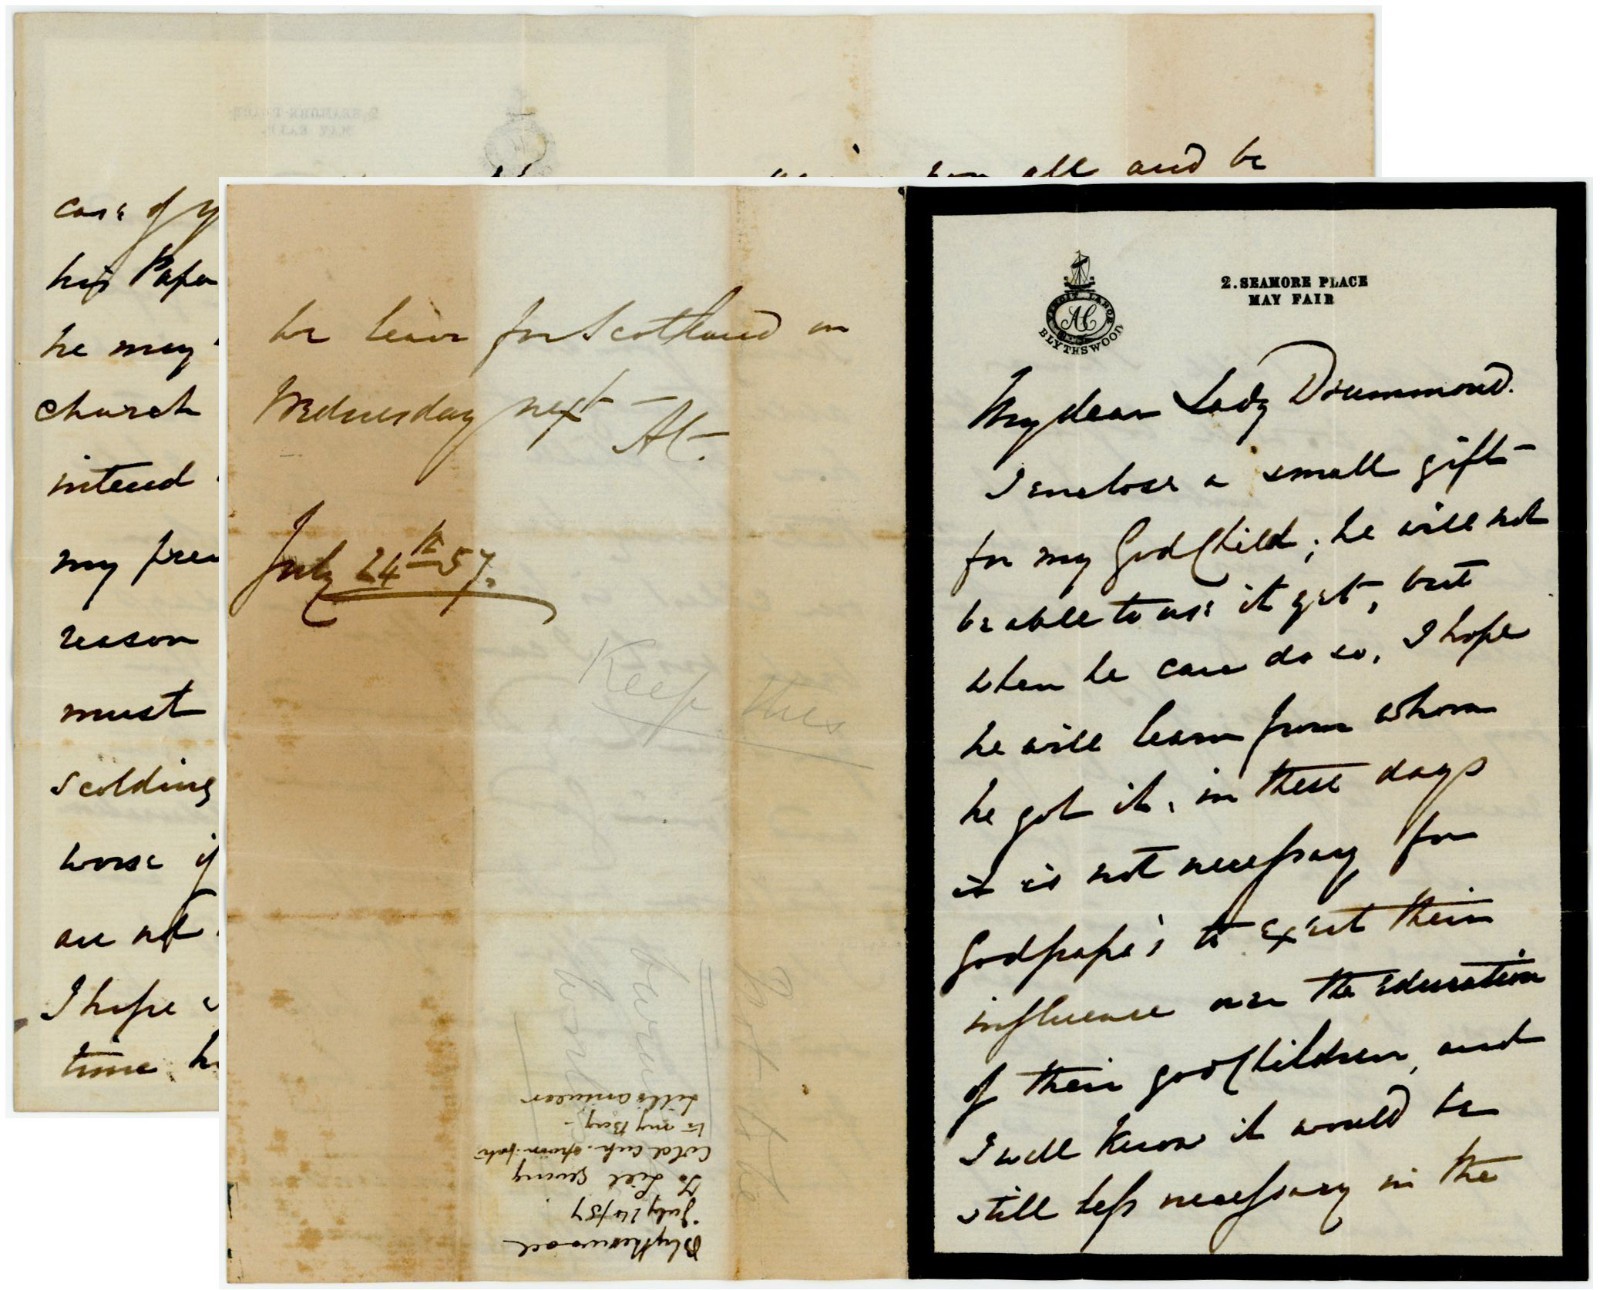 2. SEAMORE PLACE
MAY FAIR
BLYTHSWOOD
AC
My dear Lady Drummond.
I enclose a small gift
for my GodChild; he will not
be able to use it yet, but
when he can do so, I hope
he will learn from whom
he got it, in these days
it is not necessary for
Godpapa's to exert their
influence over the education
of their godChildren, and
I well know it would be
still less necessary in the
case of
his Papa
he may
church
intend
my
reason
must
scolding
worse if
are not
I hope
time
you all and be
we leave for Scotland on
Wednesday next —
AC.
July 24th 57.
Keep this
Not to be
burned
Blythswood
July 24/57
To Lill giving
Gold cup
to my Boy -
Lill's answer